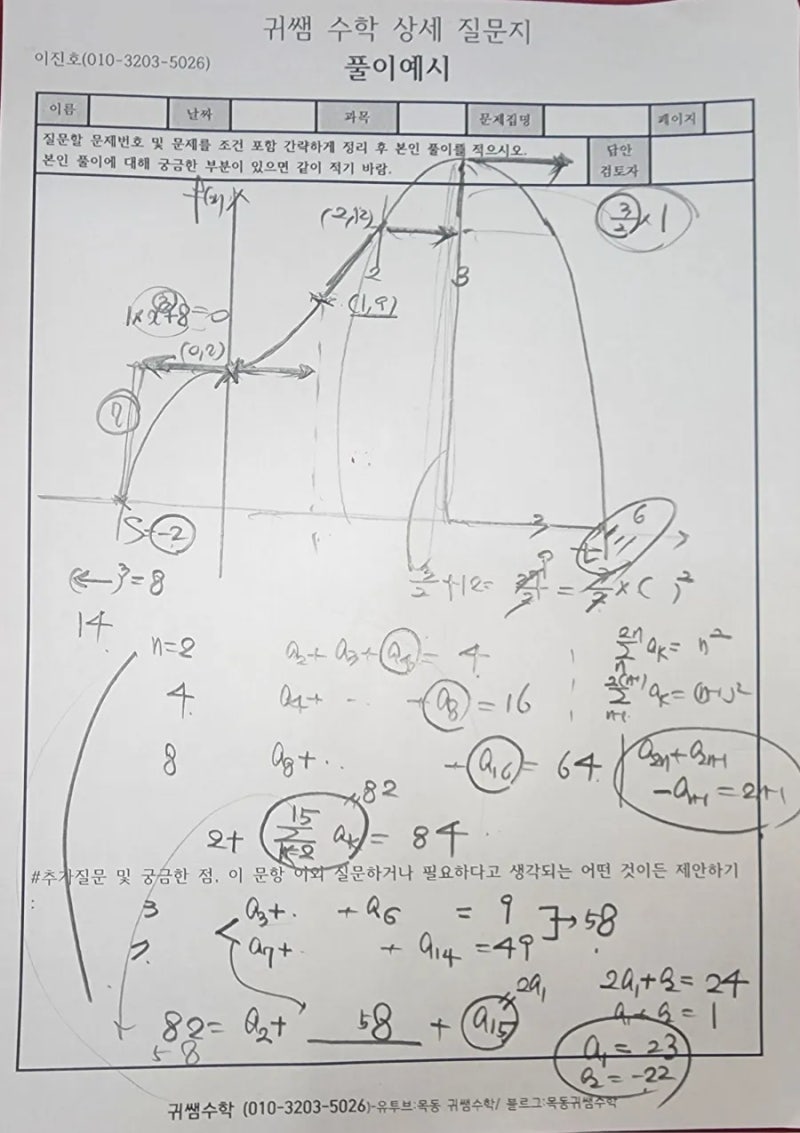 귀쌤 수학 상세 질문지
이진호(010-3203-5026)
풀이예시
이름 날짜 과목 문제집명 페이지
질문할 문제번호 및 문제를 조건 포함 간략하게 정리 후 본인 풀이를 적으시오.
본인 풀이에 대해 궁금한 부분이 있으면 같이 적기 바람.
답안
검토자
f(x)
(2,12)
3/2 × 1
2
3
(1,9)
1× x³+8=0
(0,2)
S=-2
3
6
t
(←)³=8
3/2+12= 27/2 = 3/2 ×( )²
14.
n=2 a₂+ a₃+ a₄= 4
2n Σ n aₖ= n²
4 a₄+ · · + a₈ = 16
2(n+1) Σ n+1 aₖ= (n+1)²
8 a₈+ ·· + a₁₆ = 64
a₂ₙ+a₂ₙ₊₁
-aₙ₊₁ = 2n+1
82
2+ 15 Σ k=2 aₖ = 84
#추가질문 및 궁금한 점, 이 문항 이외 질문하거나 필요하다고 생각되는 어떤 것이든 제안하기
:
3 a₃+· +a₆ = 9
→58
7 a₇+· + a₁₄ =49
2a₁
2a₁+a₂= 24
82= a₂+ 58 + a₁₅
58
a₁ = 23
a₂ = -22
귀쌤수학 (010-3203-5026)-유투브:목동 귀쌤수학/ 블로그:목동귀쌤수학